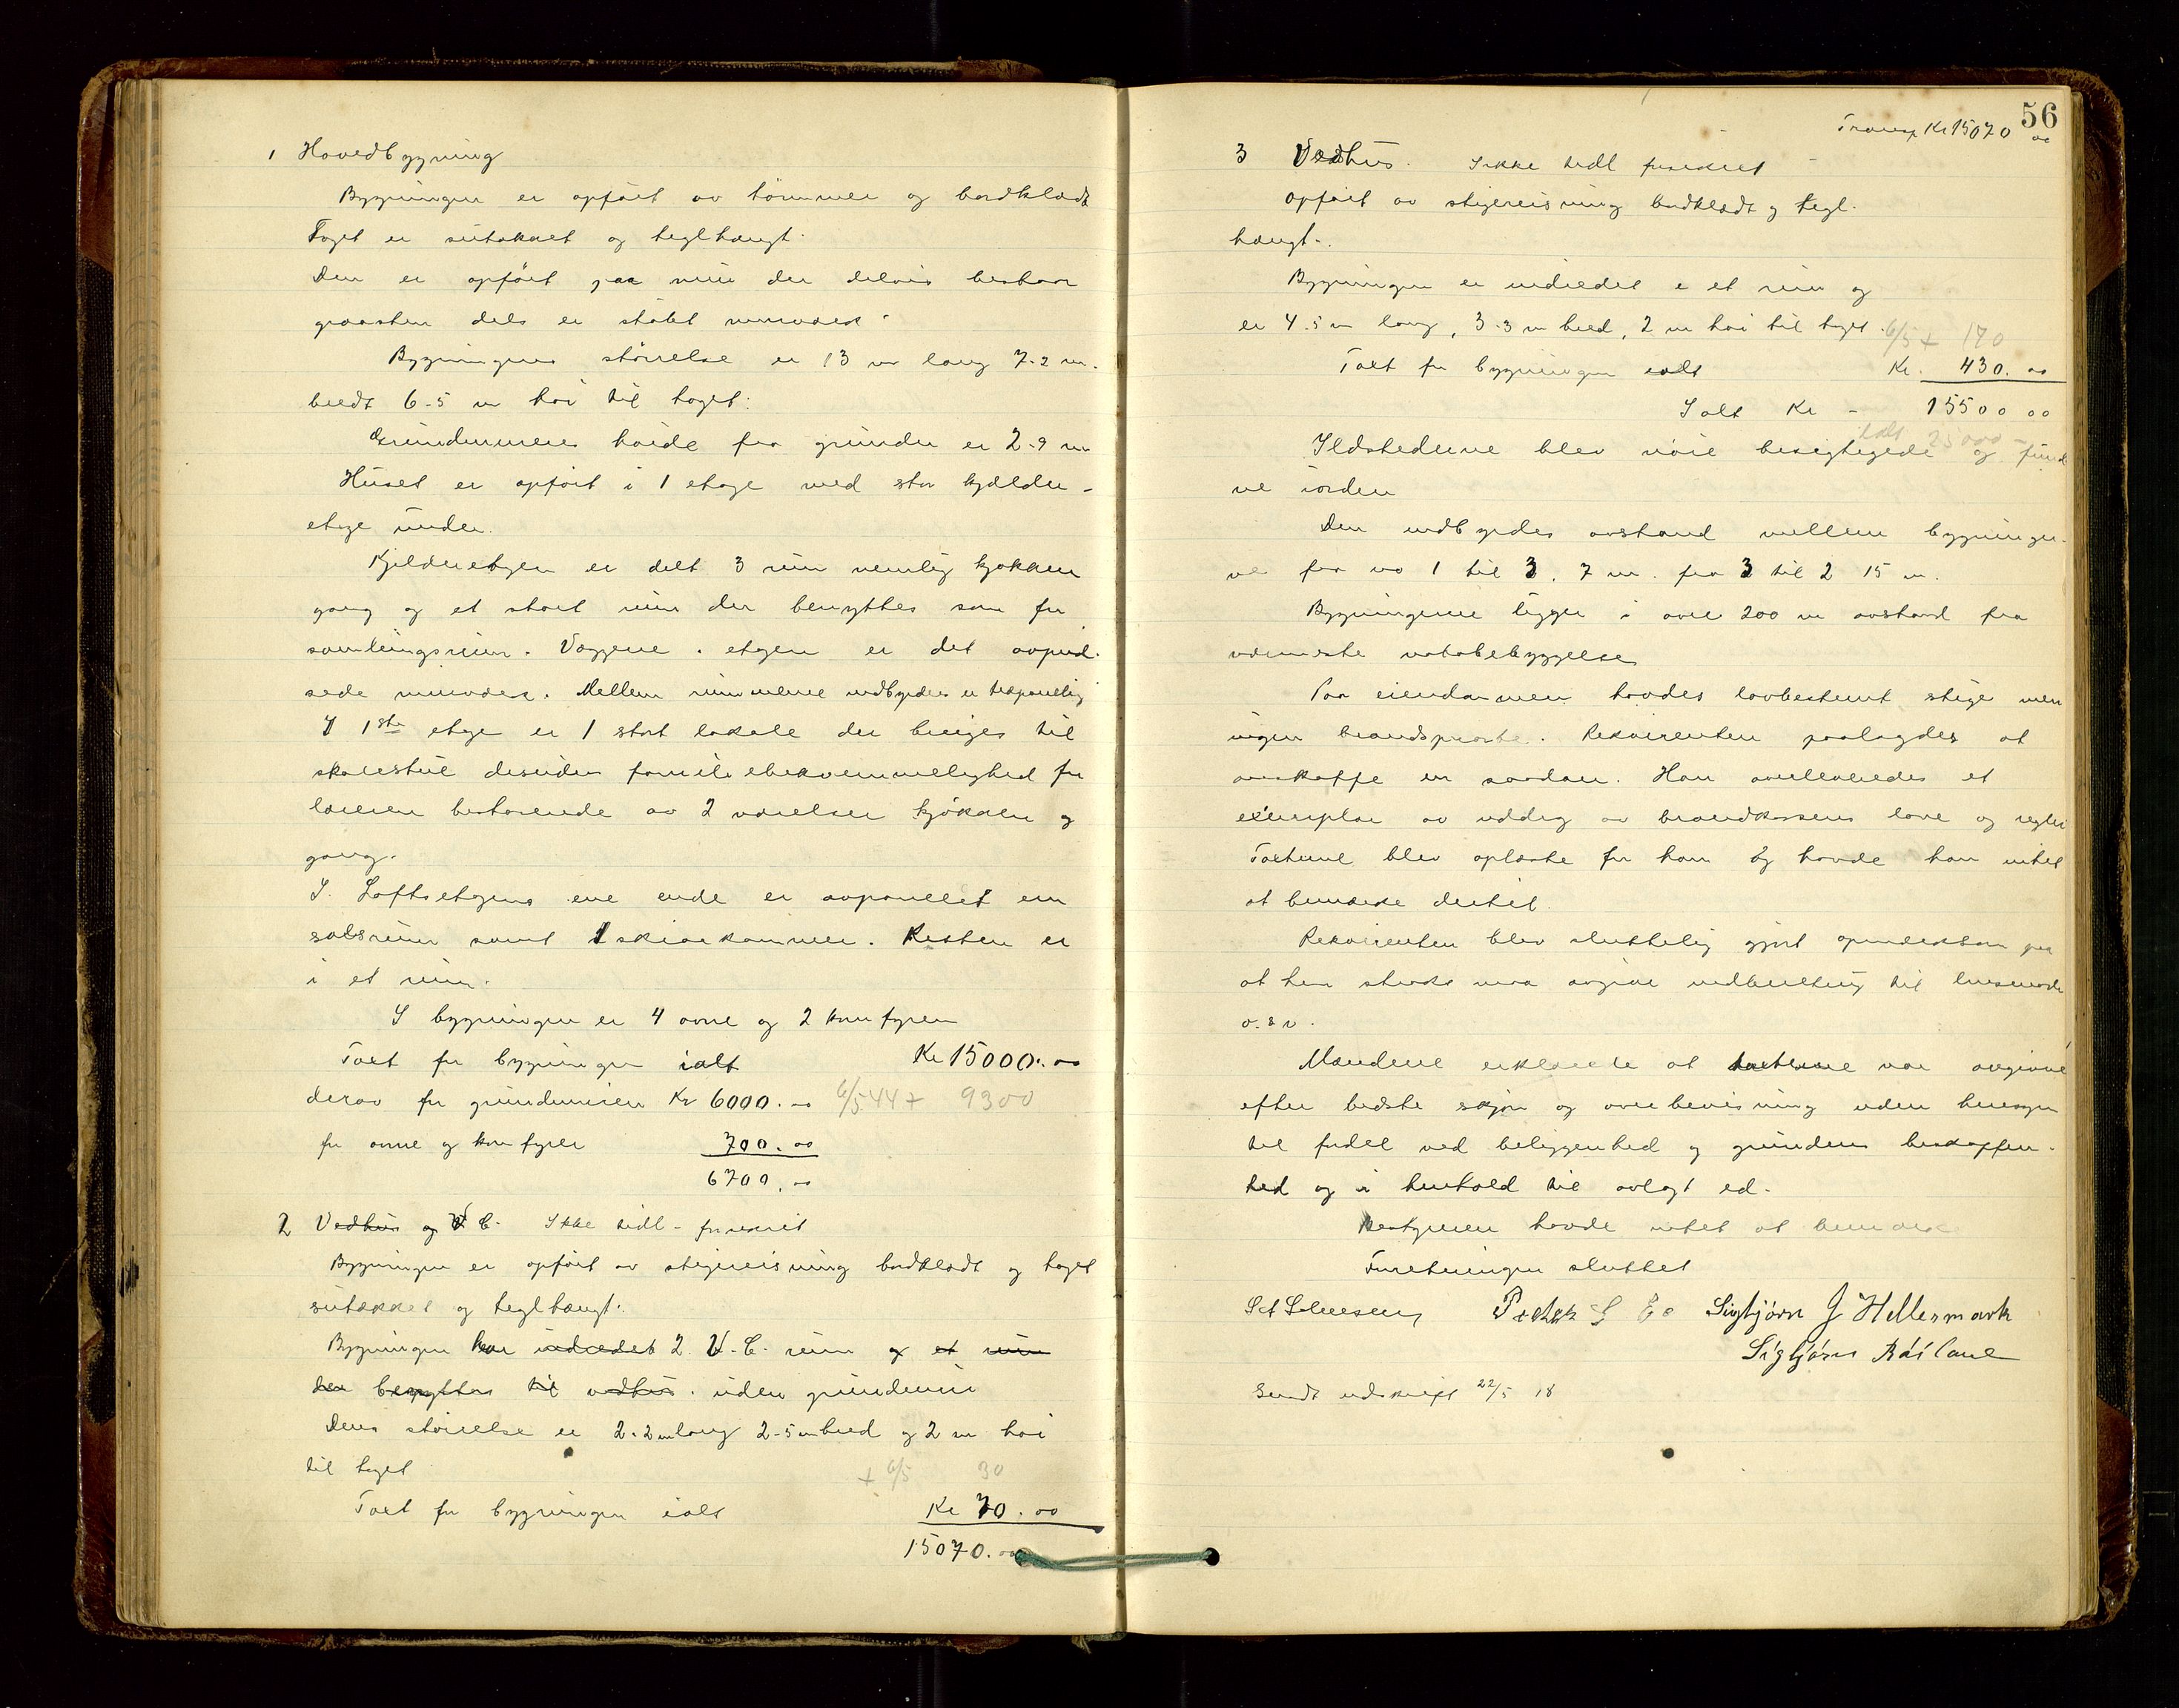 1 Hovedbygning
Bygningen er opført av tømmer og bordklædt
Taget er sutakket og teglhængt.
Den er opført paa mur der delvis bestaar
graasten dels er støbt murværk.
Bygningens størrelse er 13 m lang 7.2 m.
bredt 6.5 m høi til taget.
Grundmurens høide fra grunden er 2.9 m
Huset er opført i 1 etage med stor kjelder-
etage under.
Kjelderetagen er delt 3 rum nemlig kjøkken
gang og et stort rum der benyttes som for
samlingsrum. Væggene i etagen er det avpud-
sede murværk. Mellem rummene indbyrdes er træpaneling
I 1ste etage er 1 stort lokale der bruges til
skolestue desuden familiebekvemmelighed for
læreren bestaaende av 2 værelser kjøkken og
gang.
I Loftsetagens ene ende er avpanelet en
sals rum samt 1 skraakammer. Resten er
i et rum.
I bygningen er 4 ovne og 2 komfyrer
Taxt for bygningen ialt Kr 15000.00
derav for grundmuren Kr 6000.00 6/5 44 + 9300
for ovne og komfyrer 700.00
6700.00
2 Vedhus og W C. Ikke tidl. forsikret
Bygningen er opført av stigereisning bordklædt og taget
sutækket og teglhængt.
Bygningen har indredet 2 W.C. rum og et rum
der benyttes til vedhus. uden grundmur
Dens størrelse er 2.2 m lang 2.5 m bred og 2 m høi
til taget + 6/5 30
Taxt for bygningen ialt Kr 70.00
15070.00
56
Transp Kr 15070 00
3 Vedhus. Ikke tidl forsikret
Opført av stigereisning bordklædt og tegl-
hængt.
Bygningen er indredet i et rum og
er 4.5 m lang, 3.3 m bred, 2 m høi til taget. 6/5 + 170
Taxt for bygningen ialt Kr. 430.00
Ialt Kr - 15500 00
ialt 25000 -
Ildstederne blev nøie besigtigede og fund
ne iorden
Den indbyrdes avstand mellem bygninger-
ne fra no 1 til 3. 7 m. fra 3 til 2 15 m.
Bygningerne ligger i over 200 m avstand fra
nærmeste nabobebyggelse
Paa eiendommen havdes lovbestemt stige men
ingen brandspr. Rekvirenten paalagdes at
anskaffe en saadan. Han overleveredes et
exemplar av uddrag av brandkassens love og regler
Taxterne blev oplæste for ham og havde han intet
at bemærke dertil.
Rekvirenten blev sluttelig gjort opmærksom paa
at han straks maa avgive indberetning til lensmanden
o.s.v.
Mændene erklærede at taxterne var avgivne
efter bedste skjøn og overbevisning uden hensyn
til fordel ved beliggenhed og grundens beskaffen-
hed og i henhold til avlagt ed.
Bestyreren havde intet at bemærke
Forretningen sluttet
Peder S Sigbjørn G Hellesmark
Sigbjørn
Sendt udskrift 22/5 18